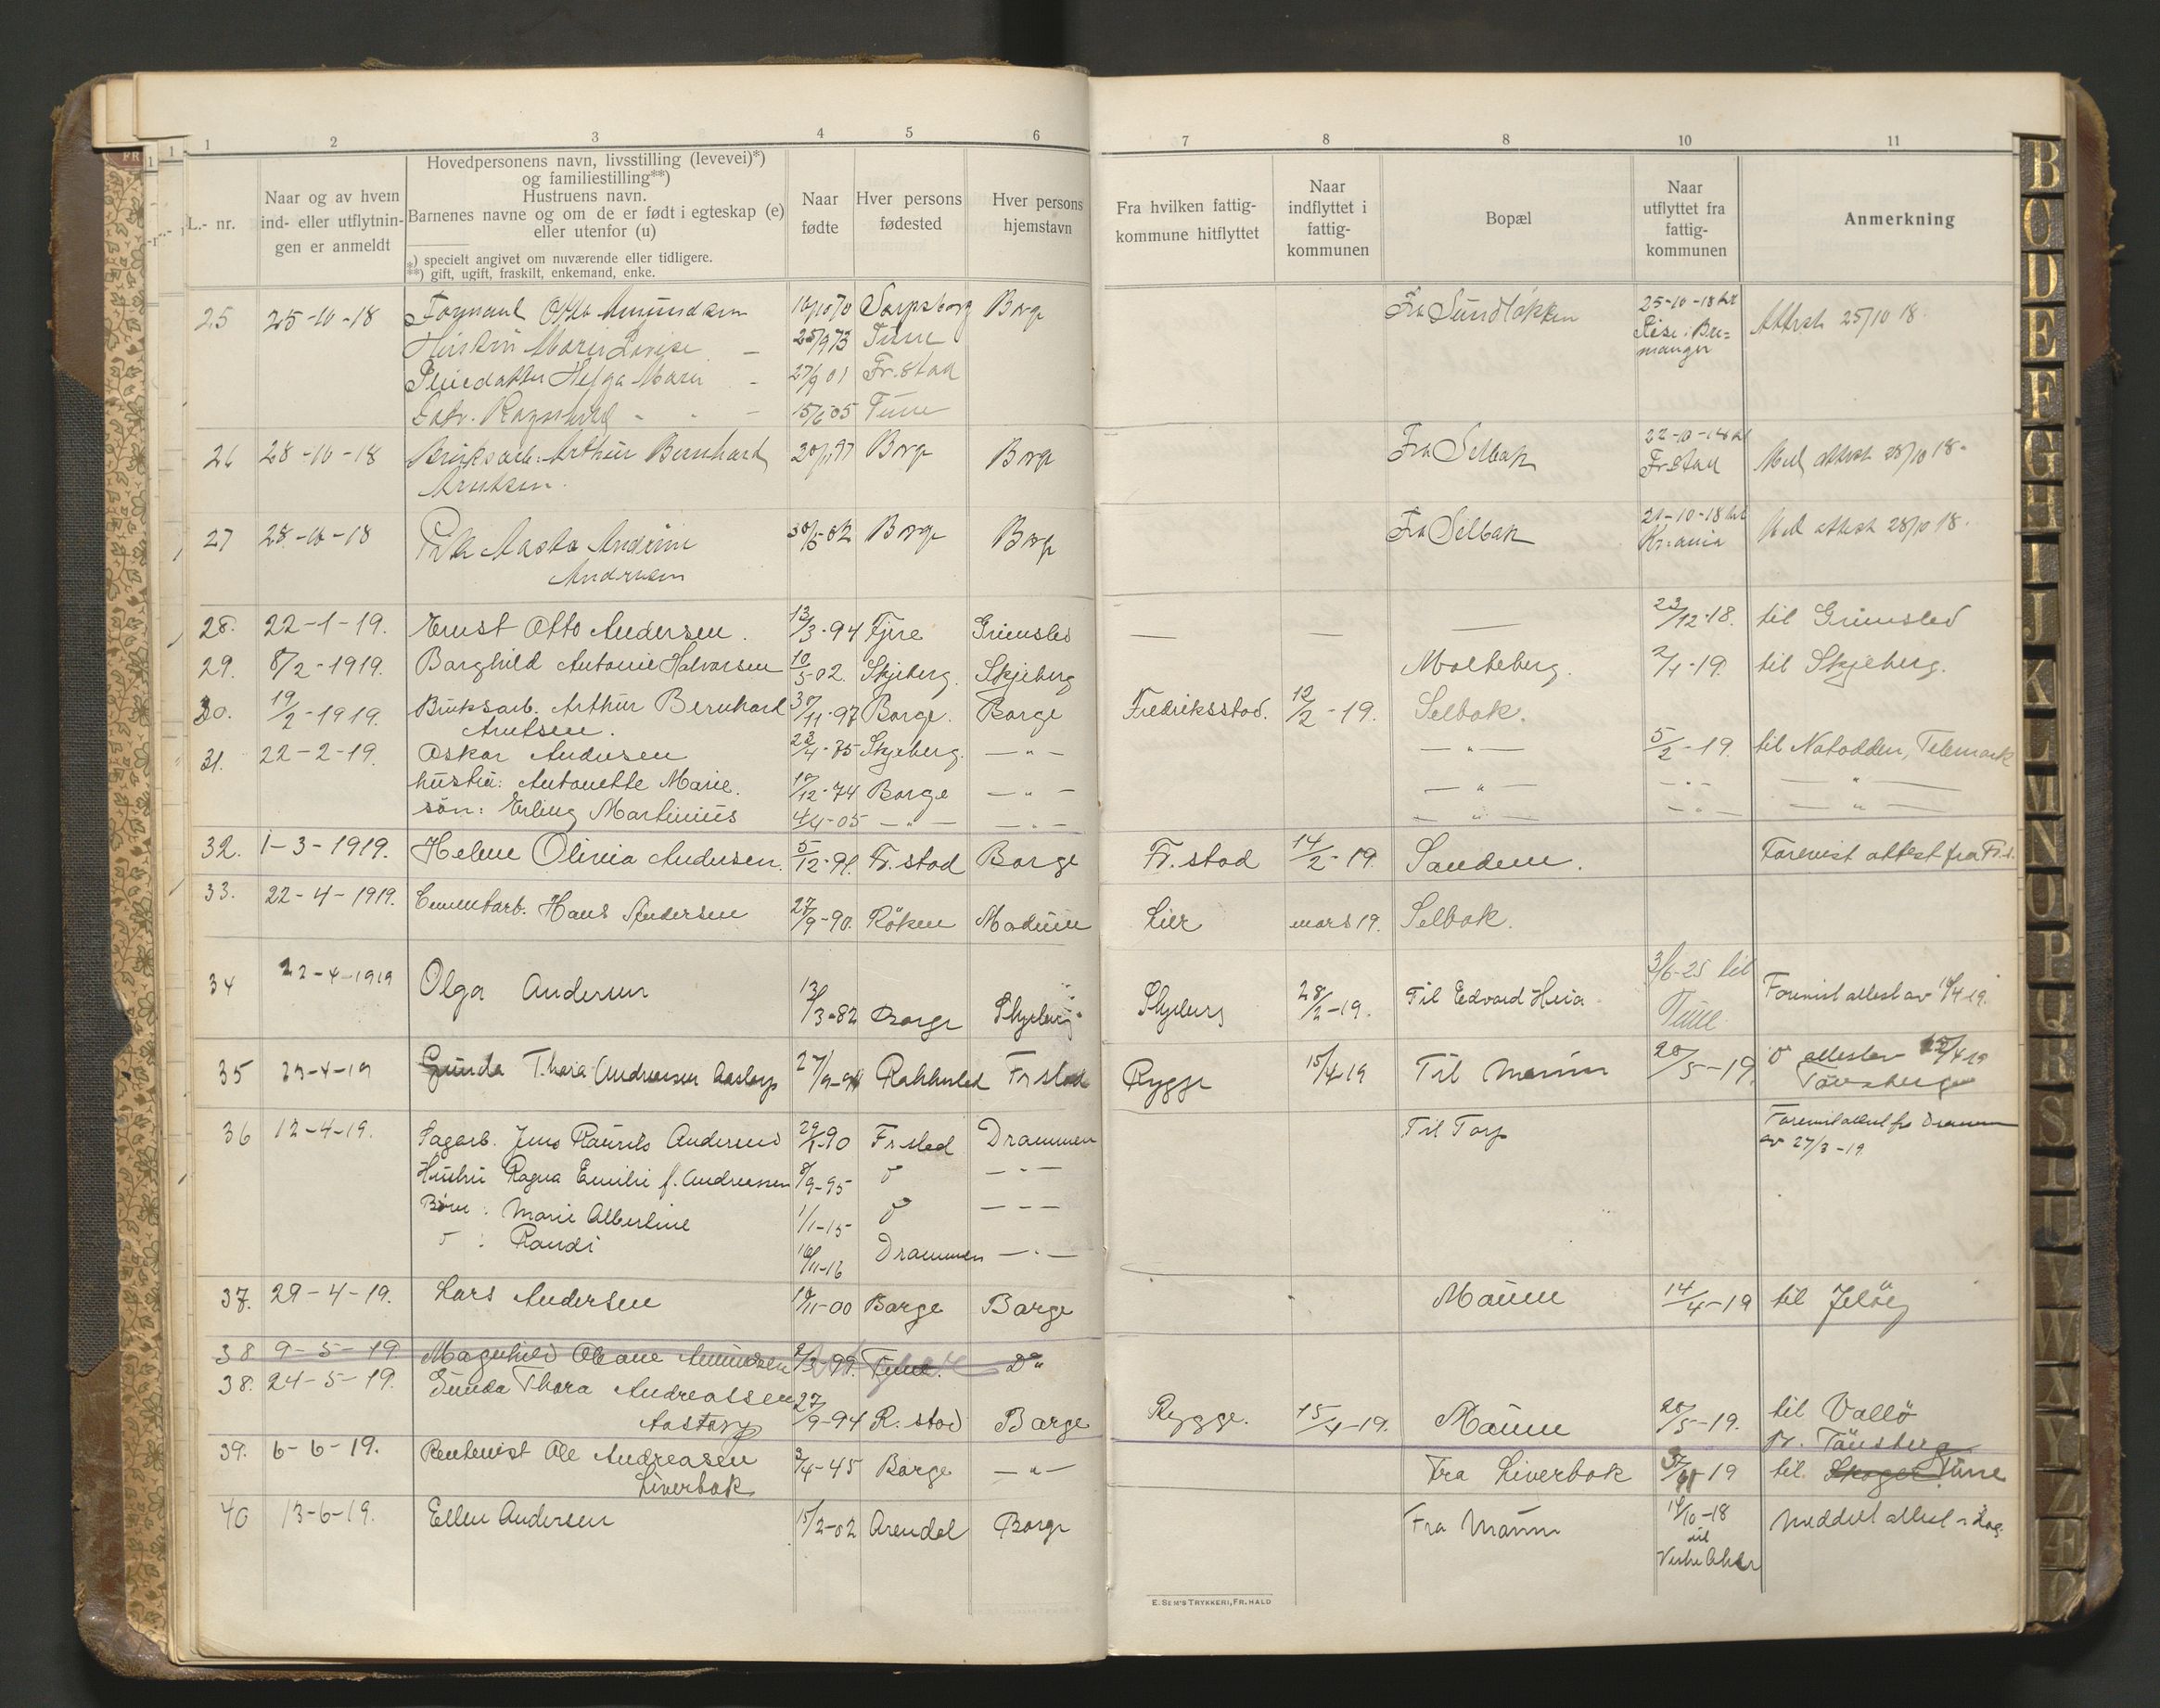 1 2 3 4 5 6 7 8 8 10 11
L.- nr.
Naar og av hvem
ind- eller utflytnin-
gen er anmeldt
Hovedpersonens navn, livsstilling (levevei)*)
og familiestilling**)
Hustruens navn.
Barnenes navne og om de er født i egteskap (e)
eller utenfor (u)
*) specielt angivet om nuværende eller tidligere.
**) gift, ugift, fraskilt, enkemand, enke.
Naar
fødte
Hver persons
fødested
Hver persons
hjemstavn
Fra hvilken fattig-
kommune hitflyttet
Naar
indflyttet i
fattig-
kommunen
Bopæl
Naar
utflyttet fra
fattig-
kommunen
Anmerkning
25 25-10-18 Otto Amundsen Sarpsborg Borge Fra 25-10-18 Attest 25/10 18.
Marie Lovise 25/9 73 Tune
Helga Marie 27/9 01 Fr.stad
Ragnhild 15/6 05 Tune
26 28-10-18 Bruksarb. Arthur Bernhard Borge Borge Fra Selbak 22-10-18 Fr.stad Med attest 28/10 18.
Arntsen.
27 28-10-18 Aasta Andrine Borge Borge Fra Selbak 21-10-18 Kr.ania Med attest 28/10 18.
Andersen
28. 22-1-19. Ernst Otto Andersen. 13/3-94 Fjære Grimsted — — — 23/12-18. til Grimsted
29. 8/2-1919. Borghild Antonie Halvorsen 10/5-02. Skjeberg. Skjeberg Molteberg. 2/1-19. til Skjeberg.
30. 19/2-1919. Bruksarb. Arthur Bernhard 30/11-97 Borge. Borge Fredriksstad. 12/2-19. Selbak.
Arntsen.
31. 22-2-19. Oskar Andersen 23/4-75 Skjeberg. —"— —"— 5/2-19. til Notodden, Telemark
hustru: Antonette Marie. 10/12-74 Borge —"— —"— —"— —"—
søn: Erling Martinius 4/4-05 —"— —"— —"— —"— —"—
32. 1-3-1919. Helene Olivia Andersen. 5/12-91. Fr.stad Borge Fr.stad 14/2-19. Sandem. Forevist attest fra Fr.s.
33. 22-4-1919. Cementarb. Hans Andersen 27/9-90. Röken Modum Lier mars 19. Selbak.
34 22-4-1919 Olga Andersen 13/3-82 Borge Skjeberg Skjeberg 28/2-19. Til Edvard 3/6-25 til Tune Forevist attest av 19.
35 23-4-19 Gunda Thora Andreassen Aastorp 27/9-94 Rakkestad Fr.stad Rygge 15/4-19 Til Maum 20/5-19. attest av
Tønsberg
36 12-4-19. Sagarb. Jens Laurits Andersen 90 Fr.stad Drammen Til Torp Forevist attest fra Drammen
av 27/3-19.
Hustru Ragna Emilie f. Andreassen 9-95 —"—
Børn: Marie Albertine 1/1-15 — — —
: Randi 11-16 Drammen —"—
37. 29-4-19. Lars Andersen 11-00 Borge Borge Maum 14/4-19 til Jelöy
38 9-5-19. Magnhild Oleane Amundsen 3-99. Tune. Do
38. 24-5-19. Gunda Thora Andreassen 27/9-94 R.stad Borge Rygge. 15/4-19. Maum 20/5-19. til Vallö
Aastorp pr. Tönsberg
39. 6-6-19. Rentenist Ole Andreasen 45 Borge —"— Fra Liverbok 19 til Skoger Tune
Liverbok
40 13-6-19. Ellen Andersen 15/2-02 Arendal Borge Fra Maum 14/10-18 Meddelt attest i dag.
til
Vestre Aker
E. SEM'S TRYKKERI, FR.HALD
B
C
D
E
F
G
H
I
J
K
L
M
N
O
P
Q
R
S
T
U
V
W
X
Y
Z
Æ
Ø